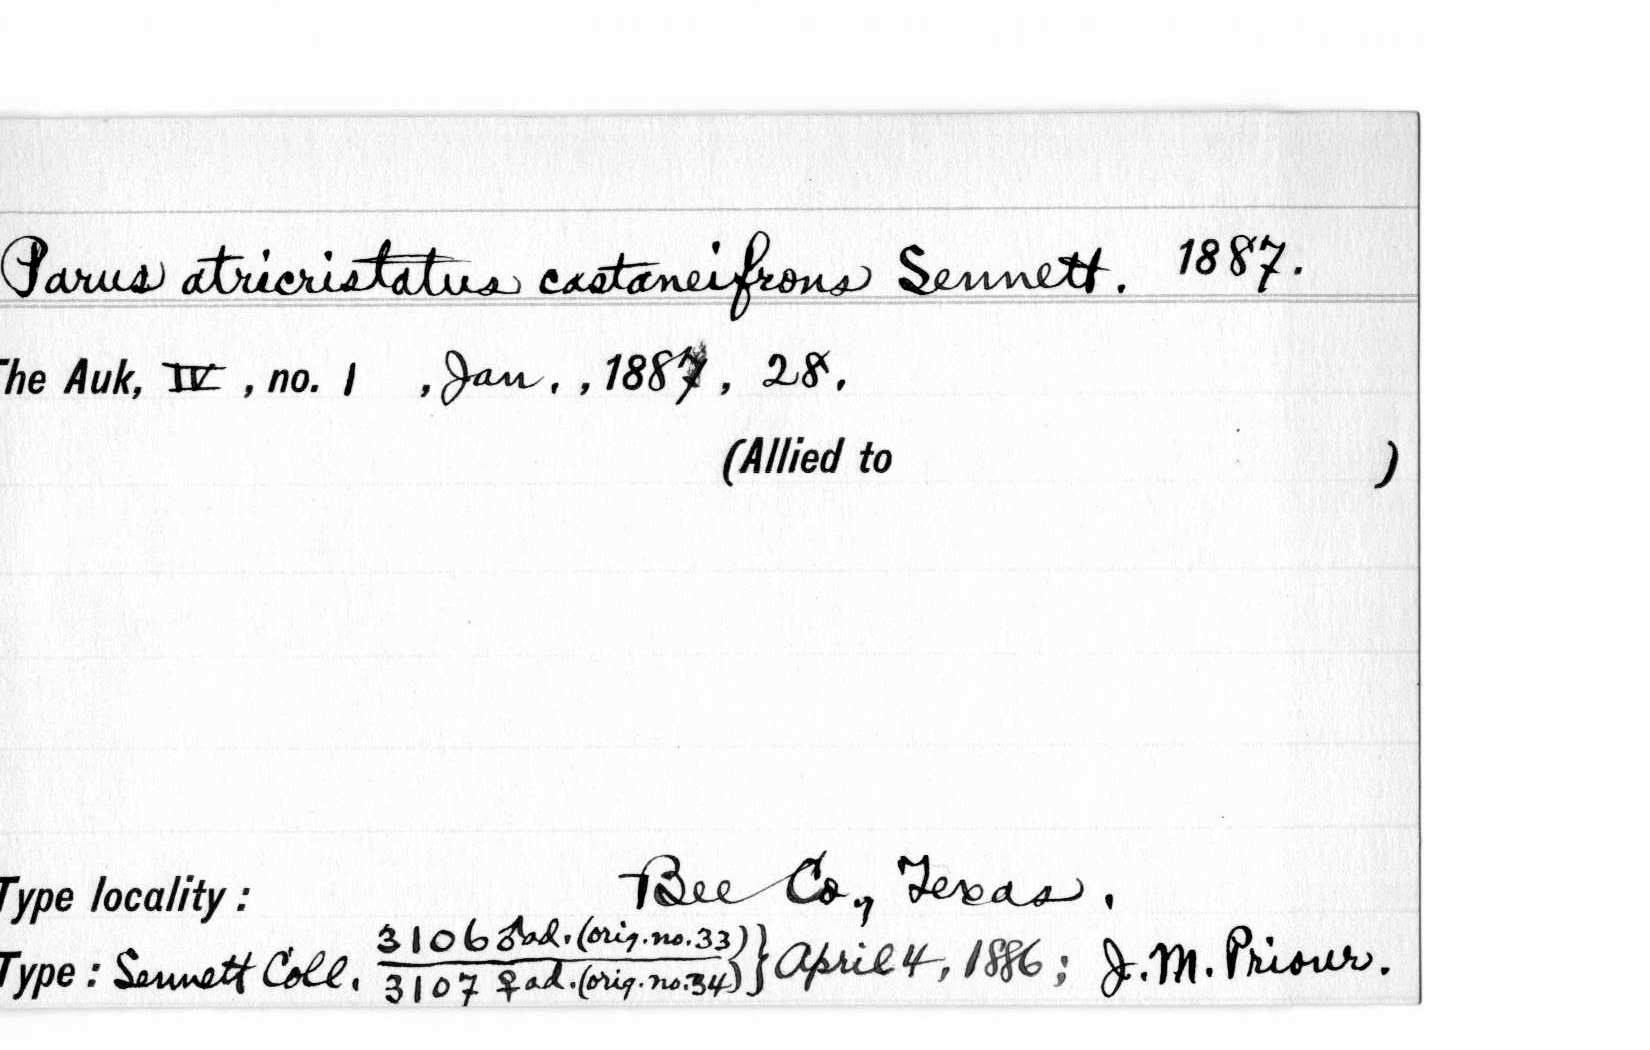 Parus atricristatus castaneifrons Sennett. 1887.
The Auk, IV , no. 1 , Jan. , 1887 , 28.
(Allied to )
Type locality : Bee Co., Texas.
Type : Sennett Coll. 3106 ♂ ad. (orig. no. 33) }
3107 ♀ ad. (orig. no. 34) } April 4, 1886 ; J. M. Priour.